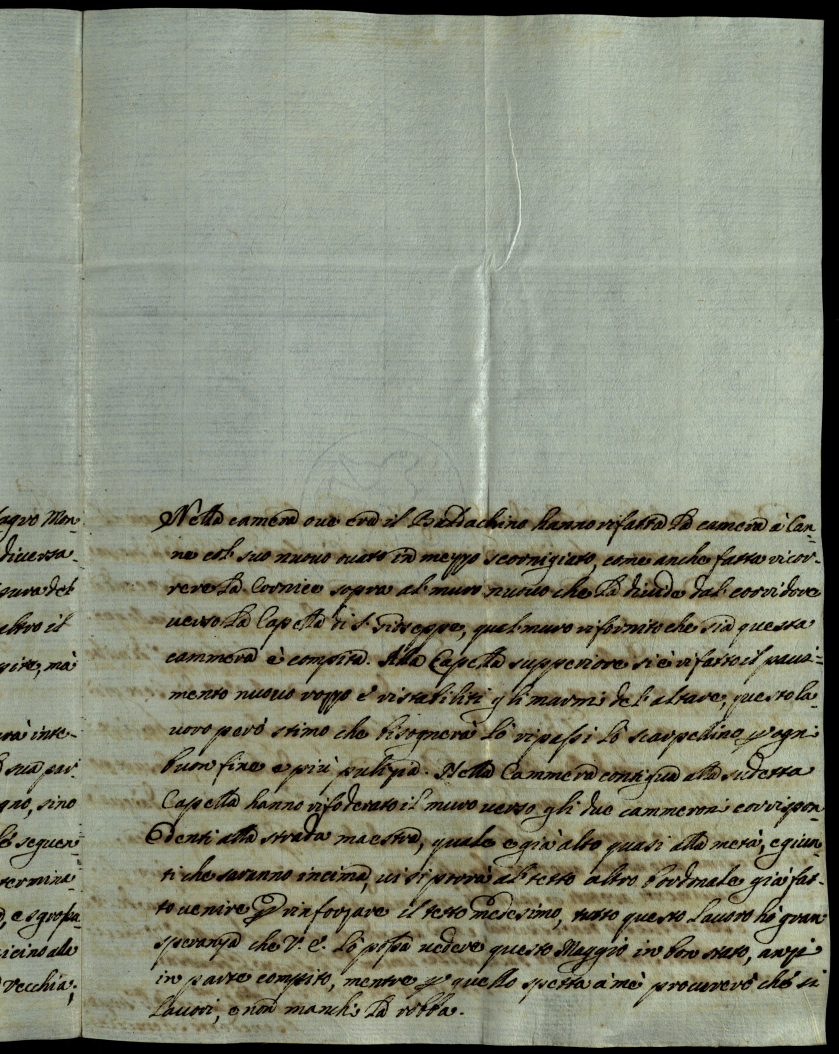 agro Mon-
diversa-
pura del
altro il
pire, mà
rà inte-
sua par
gno, sino
è seguen
termina
, e sgrossa
icino ale
Vecchia;
Nella camera ove era il Baldachino hanno rifatta la camera à Can-
ne col suo nuovo ovato in mezzo scornigiato, come anche fatta ricor-
rere la Cornice sopra al muro nuovo che la divide dal corridore
verso la Capella di S. Gioseppe, qual muro rifornito che sia questa
cammera è compita. Alla Capella supperiore si è rifatto il pavi-
mento nuovo rozzo è ristabiliti gli marmi del altare, questo la-
voro però stimo che bisognerà lo ripassi lo scarpellino p ogni
buon fine e più pulizia. Nella Cammera contigua alla sudetta
Capella hanno rifoderato il muro verso gli due cammeroni corrispon-
denti alla strada maestra, quale e già alto quasi alla metà, e giun-
ti che saranno in cima, vi si porrà al tetto altro bordonale già fat-
to venire p rinforzare il tetto medesimo, tutto questo Lavoro hò gran
speranza che V. E. lo possa vedere questo Maggio in bon stato, anzi
in parte compito, mentre p quello spetta à mè procurerò che si
Lavori, e non manchi la robba.